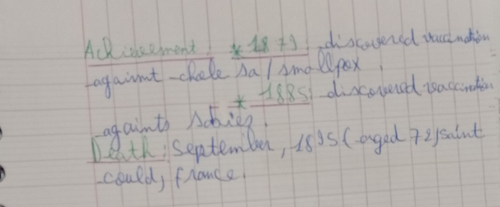 Achievement: * 1879: discovered vaccination
againt chole sa / smallpox.
* 1885: discovered vaccination
againts
Death: September, 1895 (aged 72) saint
could, france.